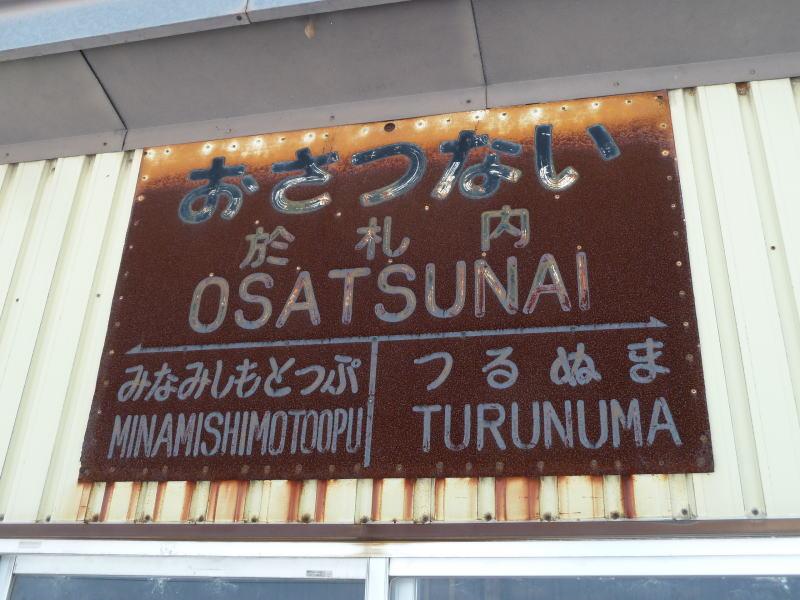 おさつない
於札内
OSATSUNAI
みなみしもとっぷ
MINAMISHIMOTOOPU
つるぬま
TURUNUMA